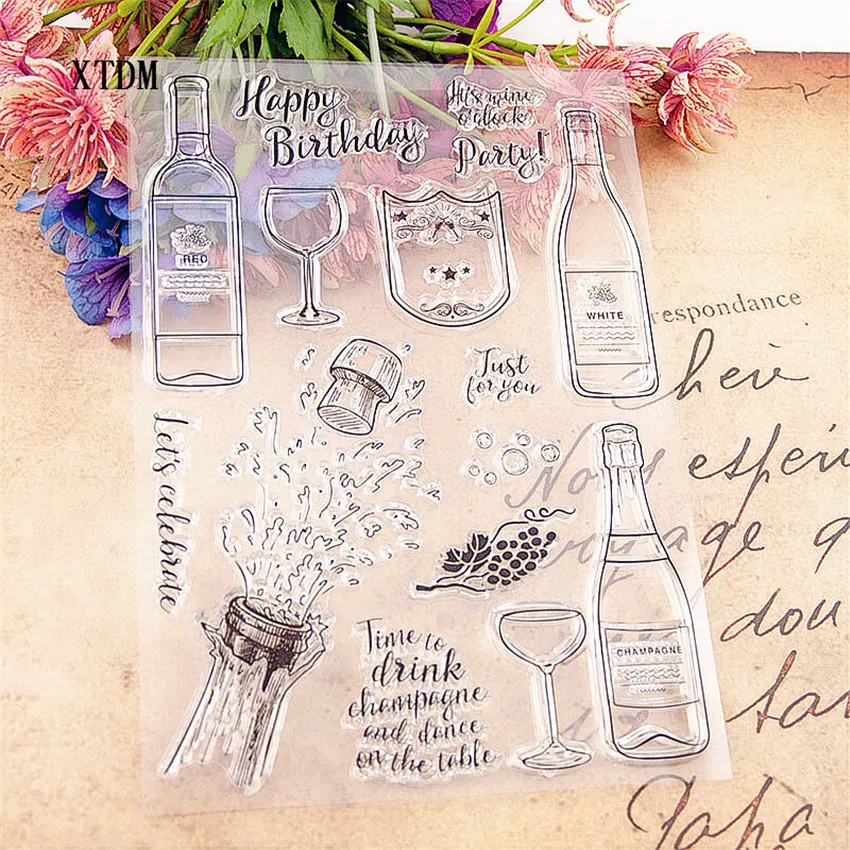 XTDM
Happy
Birthday
It's wine
o'clock
Party!
RED
WHITE
respondance
Just
for you
Let's celebrate
Time to
drink
champagne
and dance
on the table
CHAMPAGNE
chère
Nous espéri
voyage a
dou
ta
Papa